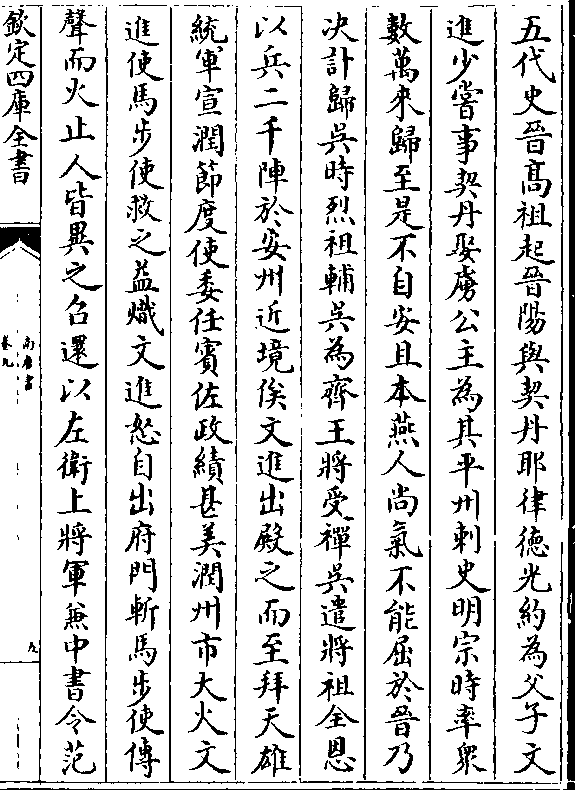 五代史晉髙祖起晉陽與契丹耶律德光約為父子文
進少嘗事契丹娶虜公主為其平州刺史明宗時率衆
數萬來歸至是不自安且本燕人尚氣不能屈於晉乃
决計歸吳時烈祖輔吳為齊王將受禪吳遣將祖全恩
以兵二千陣於安州近境俟文進出殿之而至拜天雄
統軍宣潤節度使委任賓佐政績甚美潤州市大火文
進使馬步使救之益熾文進怒自出府門斬馬步使傳
聲而火止人皆異之召還以左衛上將軍兼中書令范
欽定四庫全書
南唐書
卷九
九